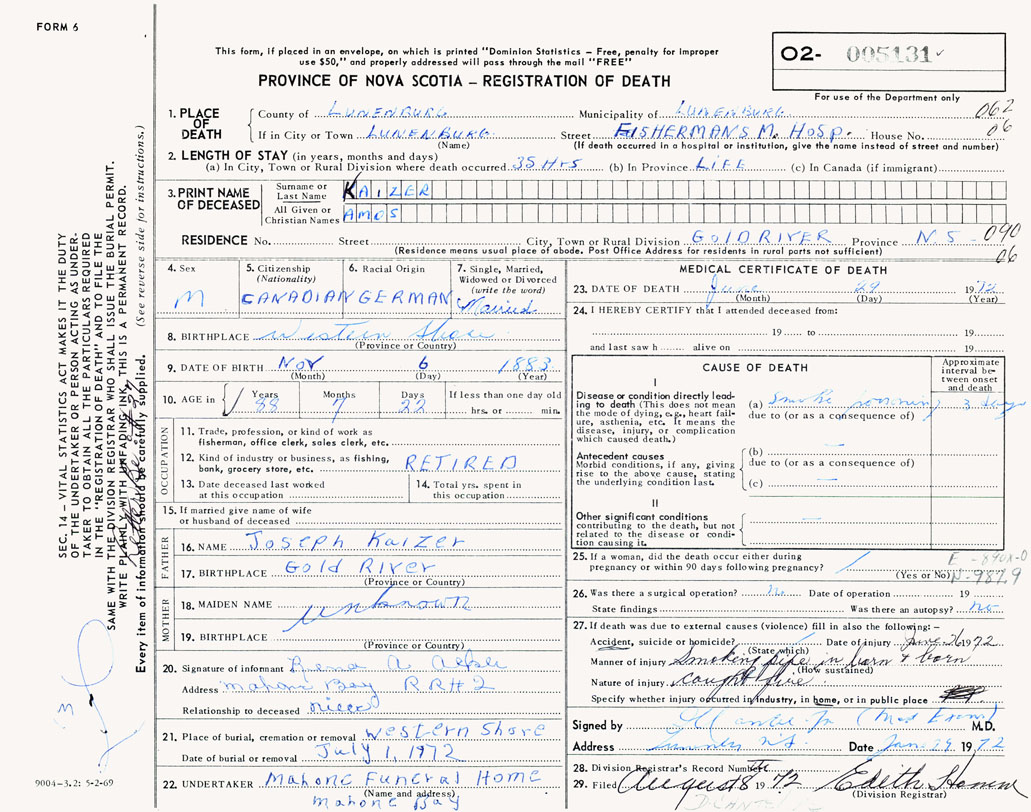 FORM 6
This form, if placed in an envelope, on which is printed "Dominion Statistics – Free, penalty for improper
use $50," and properly addressed will pass through the mail "FREE"
PROVINCE OF NOVA SCOTIA – REGISTRATION OF DEATH
O2- 005131
For use of the Department only
1. PLACE OF DEATH
County of LUNENBURG Municipality of LUNENBURG 062
If in City or Town LUNENBURG Street FISHERMAN'S M. HOSP. House No. 06
(Name) (If death occurred in a hospital or institution, give the name instead of street and number)
2. LENGTH OF STAY (in years, months and days)
(a) In City, Town or Rural Division where death occurred 35 Hrs (b) In Province LIFE (c) In Canada (if immigrant)
3. PRINT NAME OF DECEASED
Surname or Last Name KAIZER
All Given or Christian Names AMOS
RESIDENCE No. Street City, Town or Rural Division GOLD RIVER Province N.S. 090
(Residence means usual place of abode. Post Office Address for residents in rural parts not sufficient) 06
4. Sex M
5. Citizenship (Nationality) CANADIAN
6. Racial Origin GERMAN
7. Single, Married, Widowed or Divorced (write the word) Married
8. BIRTHPLACE Western Shore
(Province or Country)
9. DATE OF BIRTH Nov 6 1883
(Month) (Day) (Year)
10. AGE in Years Months Days If less than one day old
88 7 22 hrs. or min.
OCCUPATION
11. Trade, profession or kind of work as
fisherman, office clerk, sales clerk, etc.
12. Kind of industry or business, as fishing,
bank, grocery store, etc. RETIRED
13. Date deceased last worked
at this occupation
14. Total yrs. spent in
this occupation
15. If married give name of wife
or husband of deceased
FATHER
16. NAME Joseph Kaizer
17. BIRTHPLACE Gold River
(Province or Country)
MOTHER
18. MAIDEN NAME unknown
19. BIRTHPLACE
(Province or Country)
20. Signature of informant
Address Mahone Bay RR#2
Relationship to deceased niece
21. Place of burial, cremation or removal Western Shore
Date of burial or removal July 1, 1972
22. UNDERTAKER Mahone Funeral Home
(Name and address)
Mahone Bay
MEDICAL CERTIFICATE OF DEATH
23. DATE OF DEATH June 29 1972
(Month) (Day) (Year)
24. I HEREBY CERTIFY that I attended deceased from:
19 to 19
and last saw h alive on 19
CAUSE OF DEATH
Approximate interval between onset and death
I
Disease or condition directly lead-
ing to death (This does not mean
the mode of dying, e.g., heart fail-
ure, asthenia, etc. It means the
disease, injury, or complication
which caused death.)
(a) Smoke poisoning 3 days
due to (or as a consequence of)
Antecedent causes
Morbid conditions, if any, giving
rise to the above cause, stating
the underlying condition last.
(b) —
due to (or as a consequence of)
(c) —
II
Other significant conditions
contributing to the death, but not
related to the disease or condi-
tion causing it.
—
25. If a woman, did the death occur either during
pregnancy or within 90 days following pregnancy?
(Yes or No)
E -890X-0
N-987.9
26. Was there a surgical operation? No Date of operation 19
State findings Was there an autopsy? No
27. If death was due to external causes (violence) fill in also the following:–
Accident, suicide or homicide? Date of injury June 26 1972
(State which)
Manner of injury Smoking pipe in barn & barn
(How sustained)
Nature of injury caught fire
Specify whether injury occurred in industry, in home, or in public place
Signed by M.D.
Address N.S. Date 29 1972
28. Division Registrar's Record Number
29. Filed August 8 1972 Edith
(Division Registrar)
SEC. 14 – VITAL STATISTICS ACT MAKES IT THE DUTY
OF THE UNDERTAKER OR PERSON ACTING AS UNDER-
TAKER TO OBTAIN ALL THE PARTICULARS REQUIRED
IN THE "REGISTRATION OF DEATH" AND TO FILE THE
SAME WITH THE DIVISION REGISTRAR WHO SHALL ISSUE THE BURIAL PERMIT.
WRITE PLAINLY WITH UNFADING INK, THIS IS A PERMANENT RECORD.
Every item of information should be carefully supplied. (See reverse side for instructions.)
9004-3.2: 5-2-69